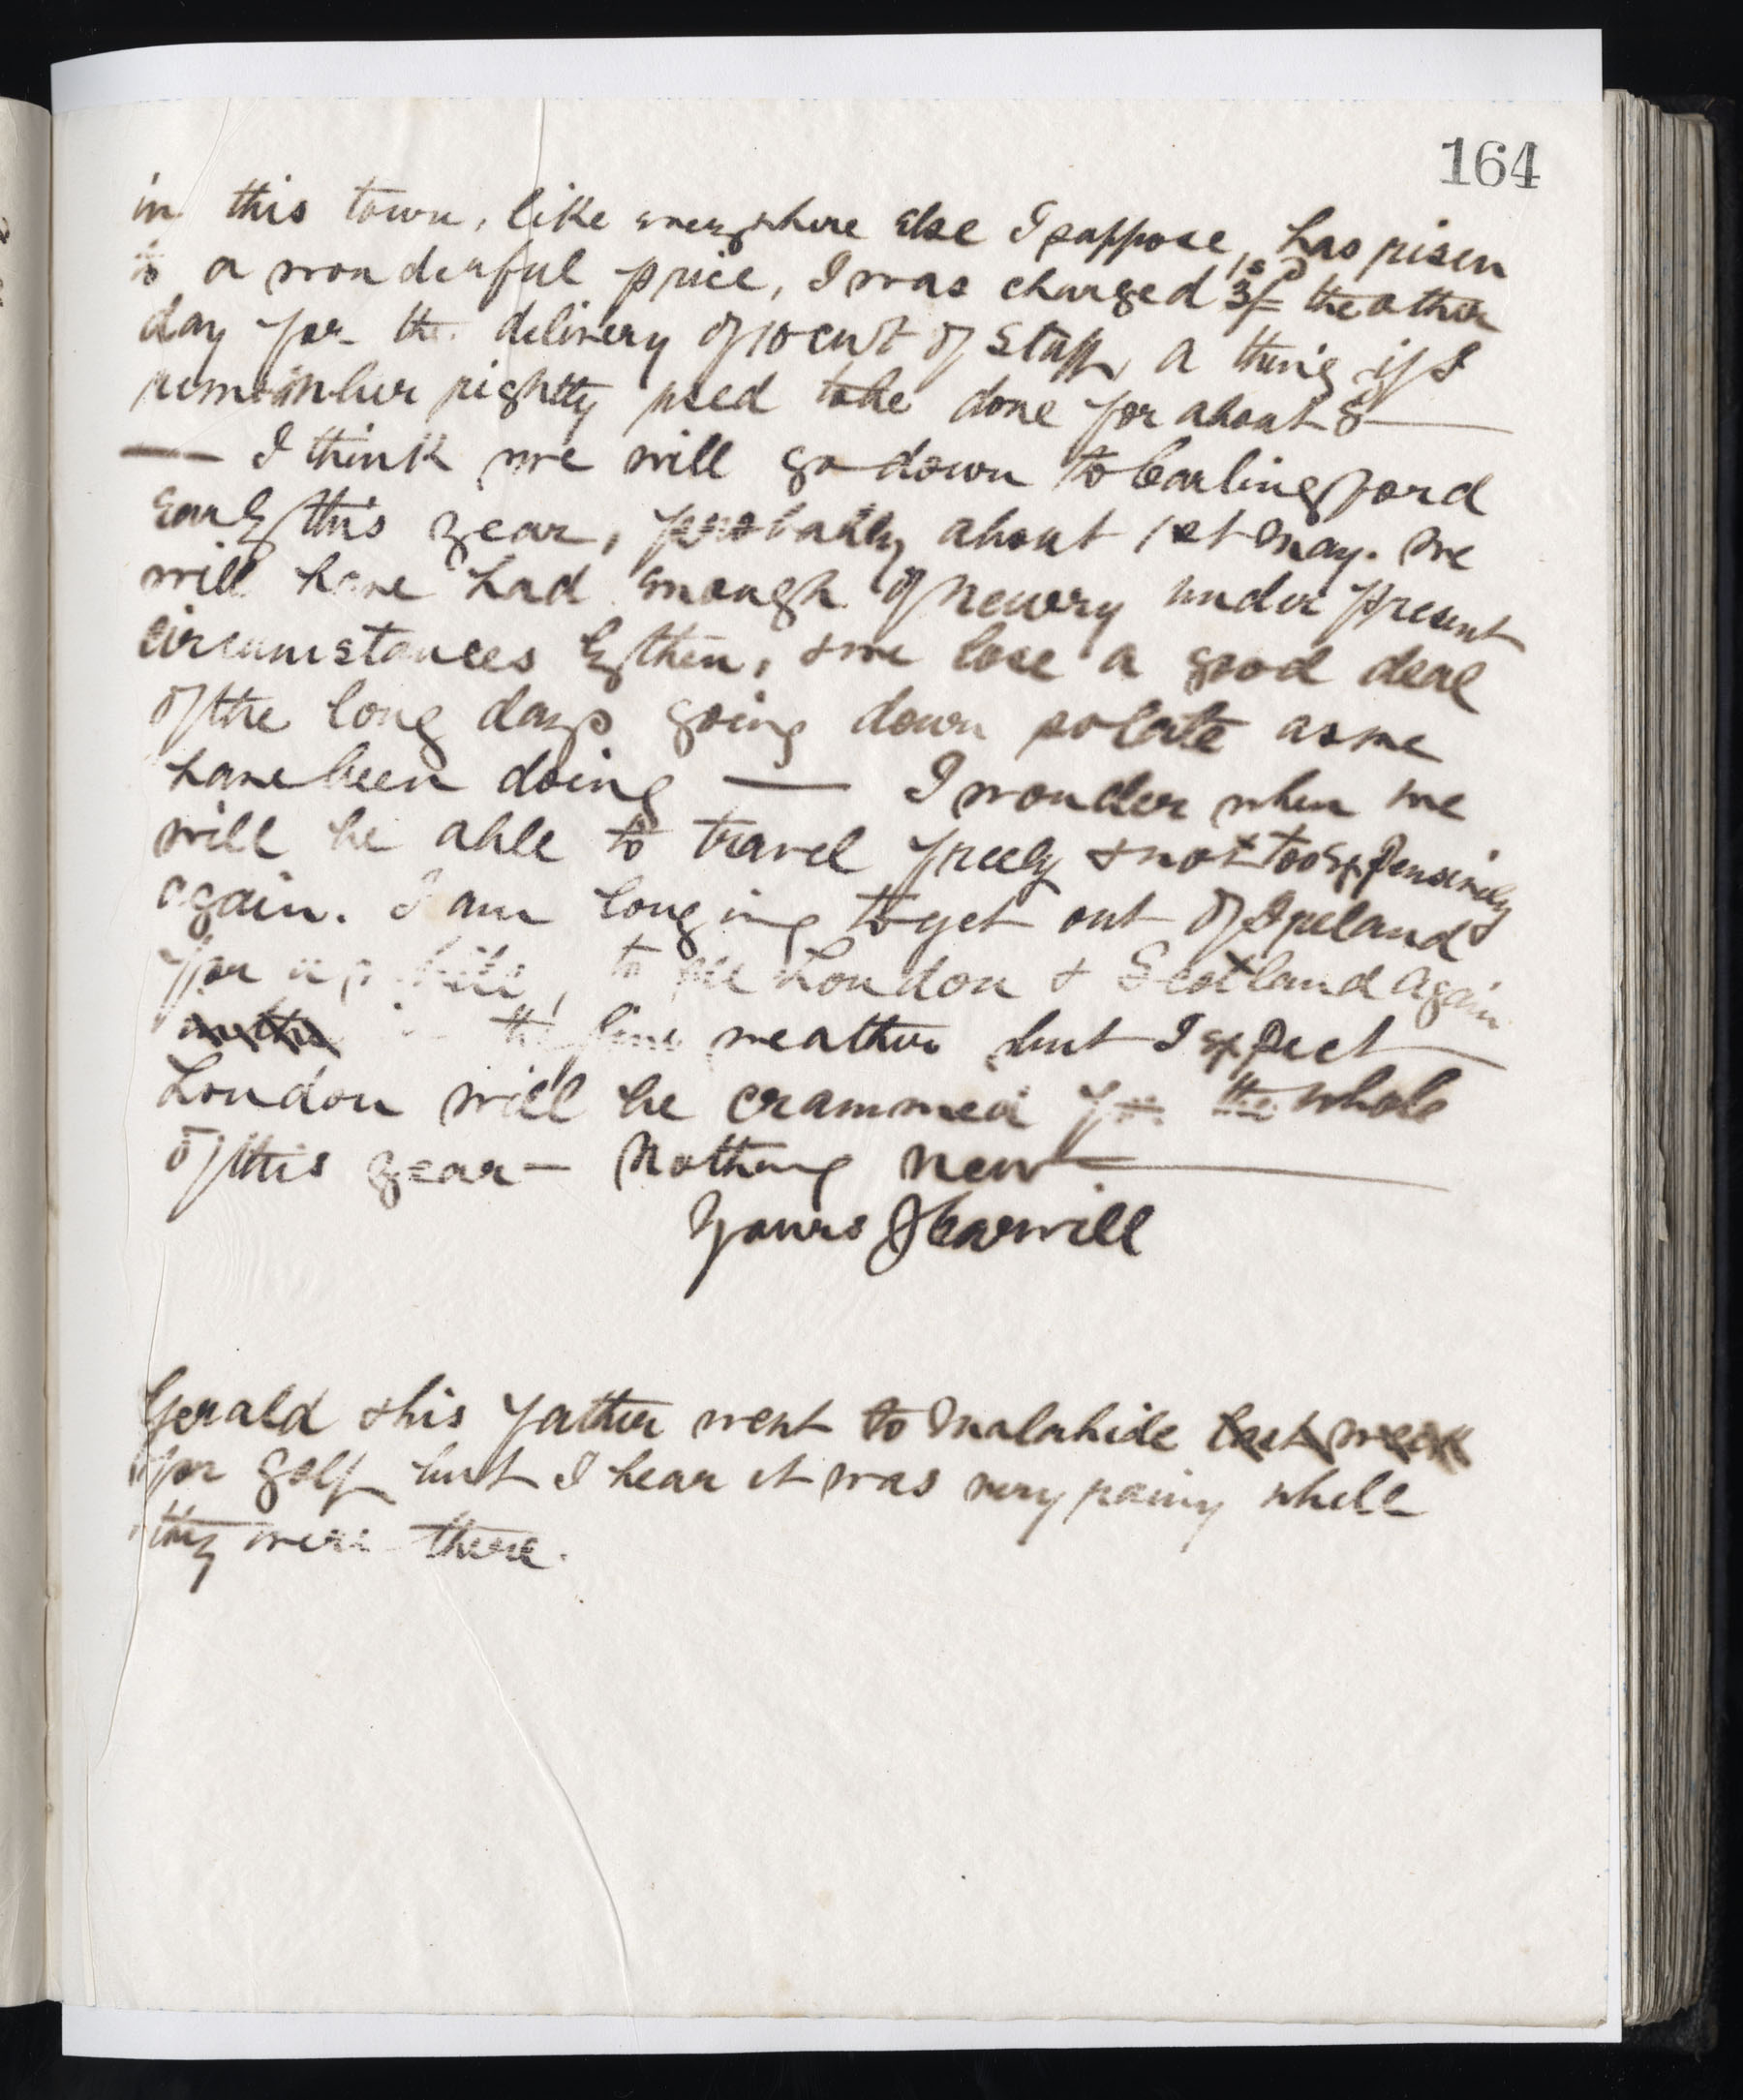 164
in this town, like everywhere else I suppose, has risen
to a wonderful price, I was charged 3/= the other
day for the delivery of 10 cwt of stuff, a thing if I
remember rightly used to be done for about 8
— I think we will go down to Carlingford
early this year, probably about 1st May. We
will have had enough of Newry under present
circumstances by then, & we lose a good deal
of the long days going down so late as we
have been doing — I wonder when we
will be able to travel freely & not too expensively
again. I am longing to get out of Ireland
for a while, to see London & Scotland again
in the fine weather but I expect
London will be crammed for the whole
of this year — Nothing new —
Yours JCarvill
Gerald & his father went to Malahide last week
for golf but I hear it was very rainy while
they were there.